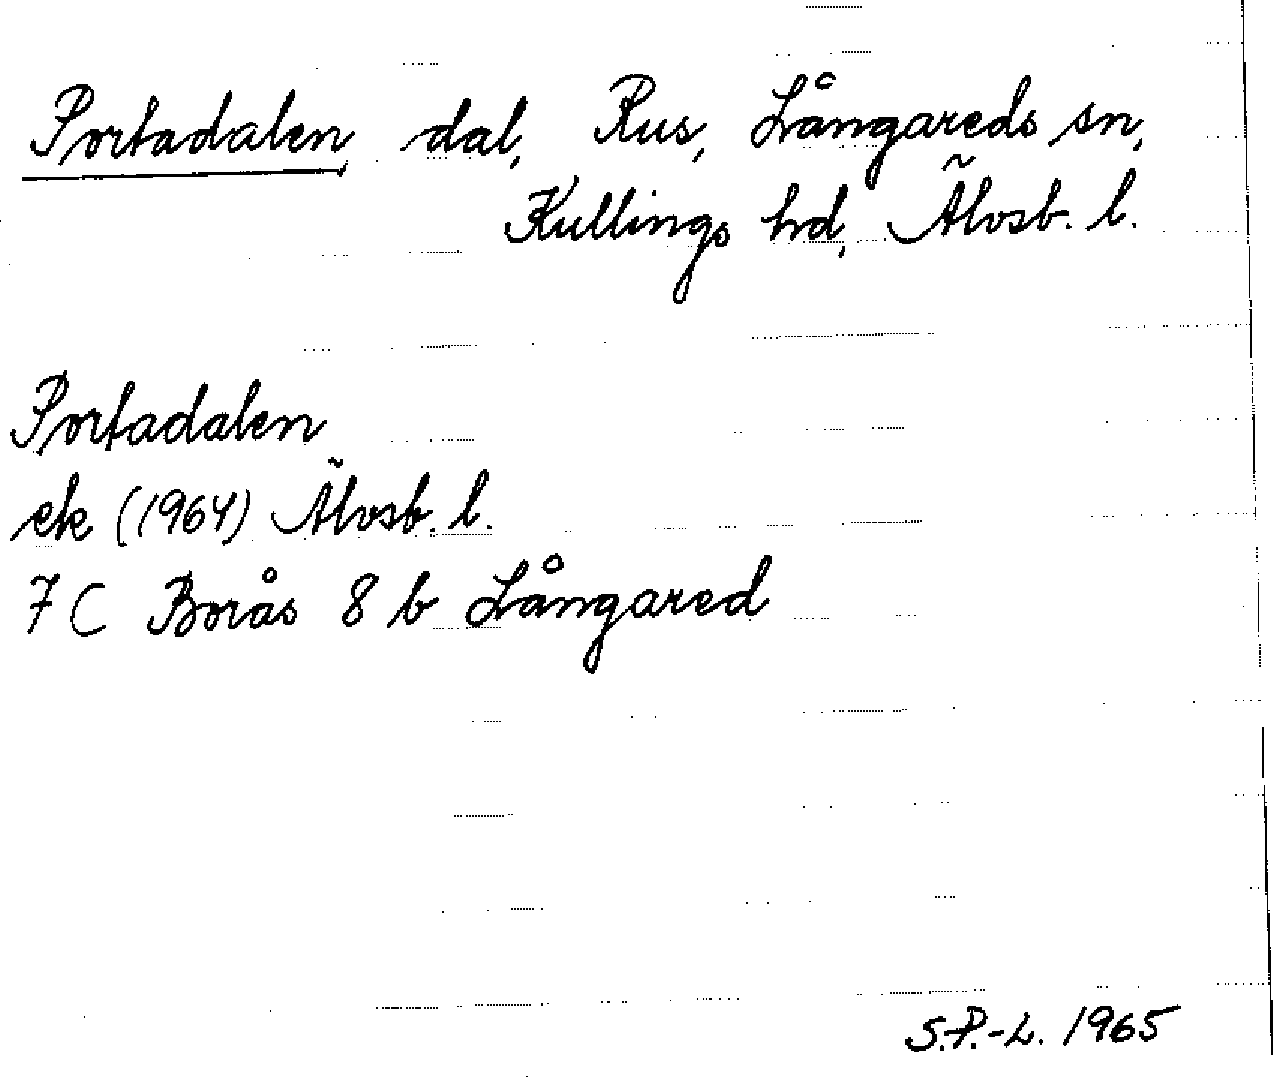 Portadalen dal, Rus, Långareds sn,
Kullings hd, Älvsb. l.
Portadalen
ek (1964) Älvsb. l.
7 C Borås 8 b Långared
S.P.-L. 1965